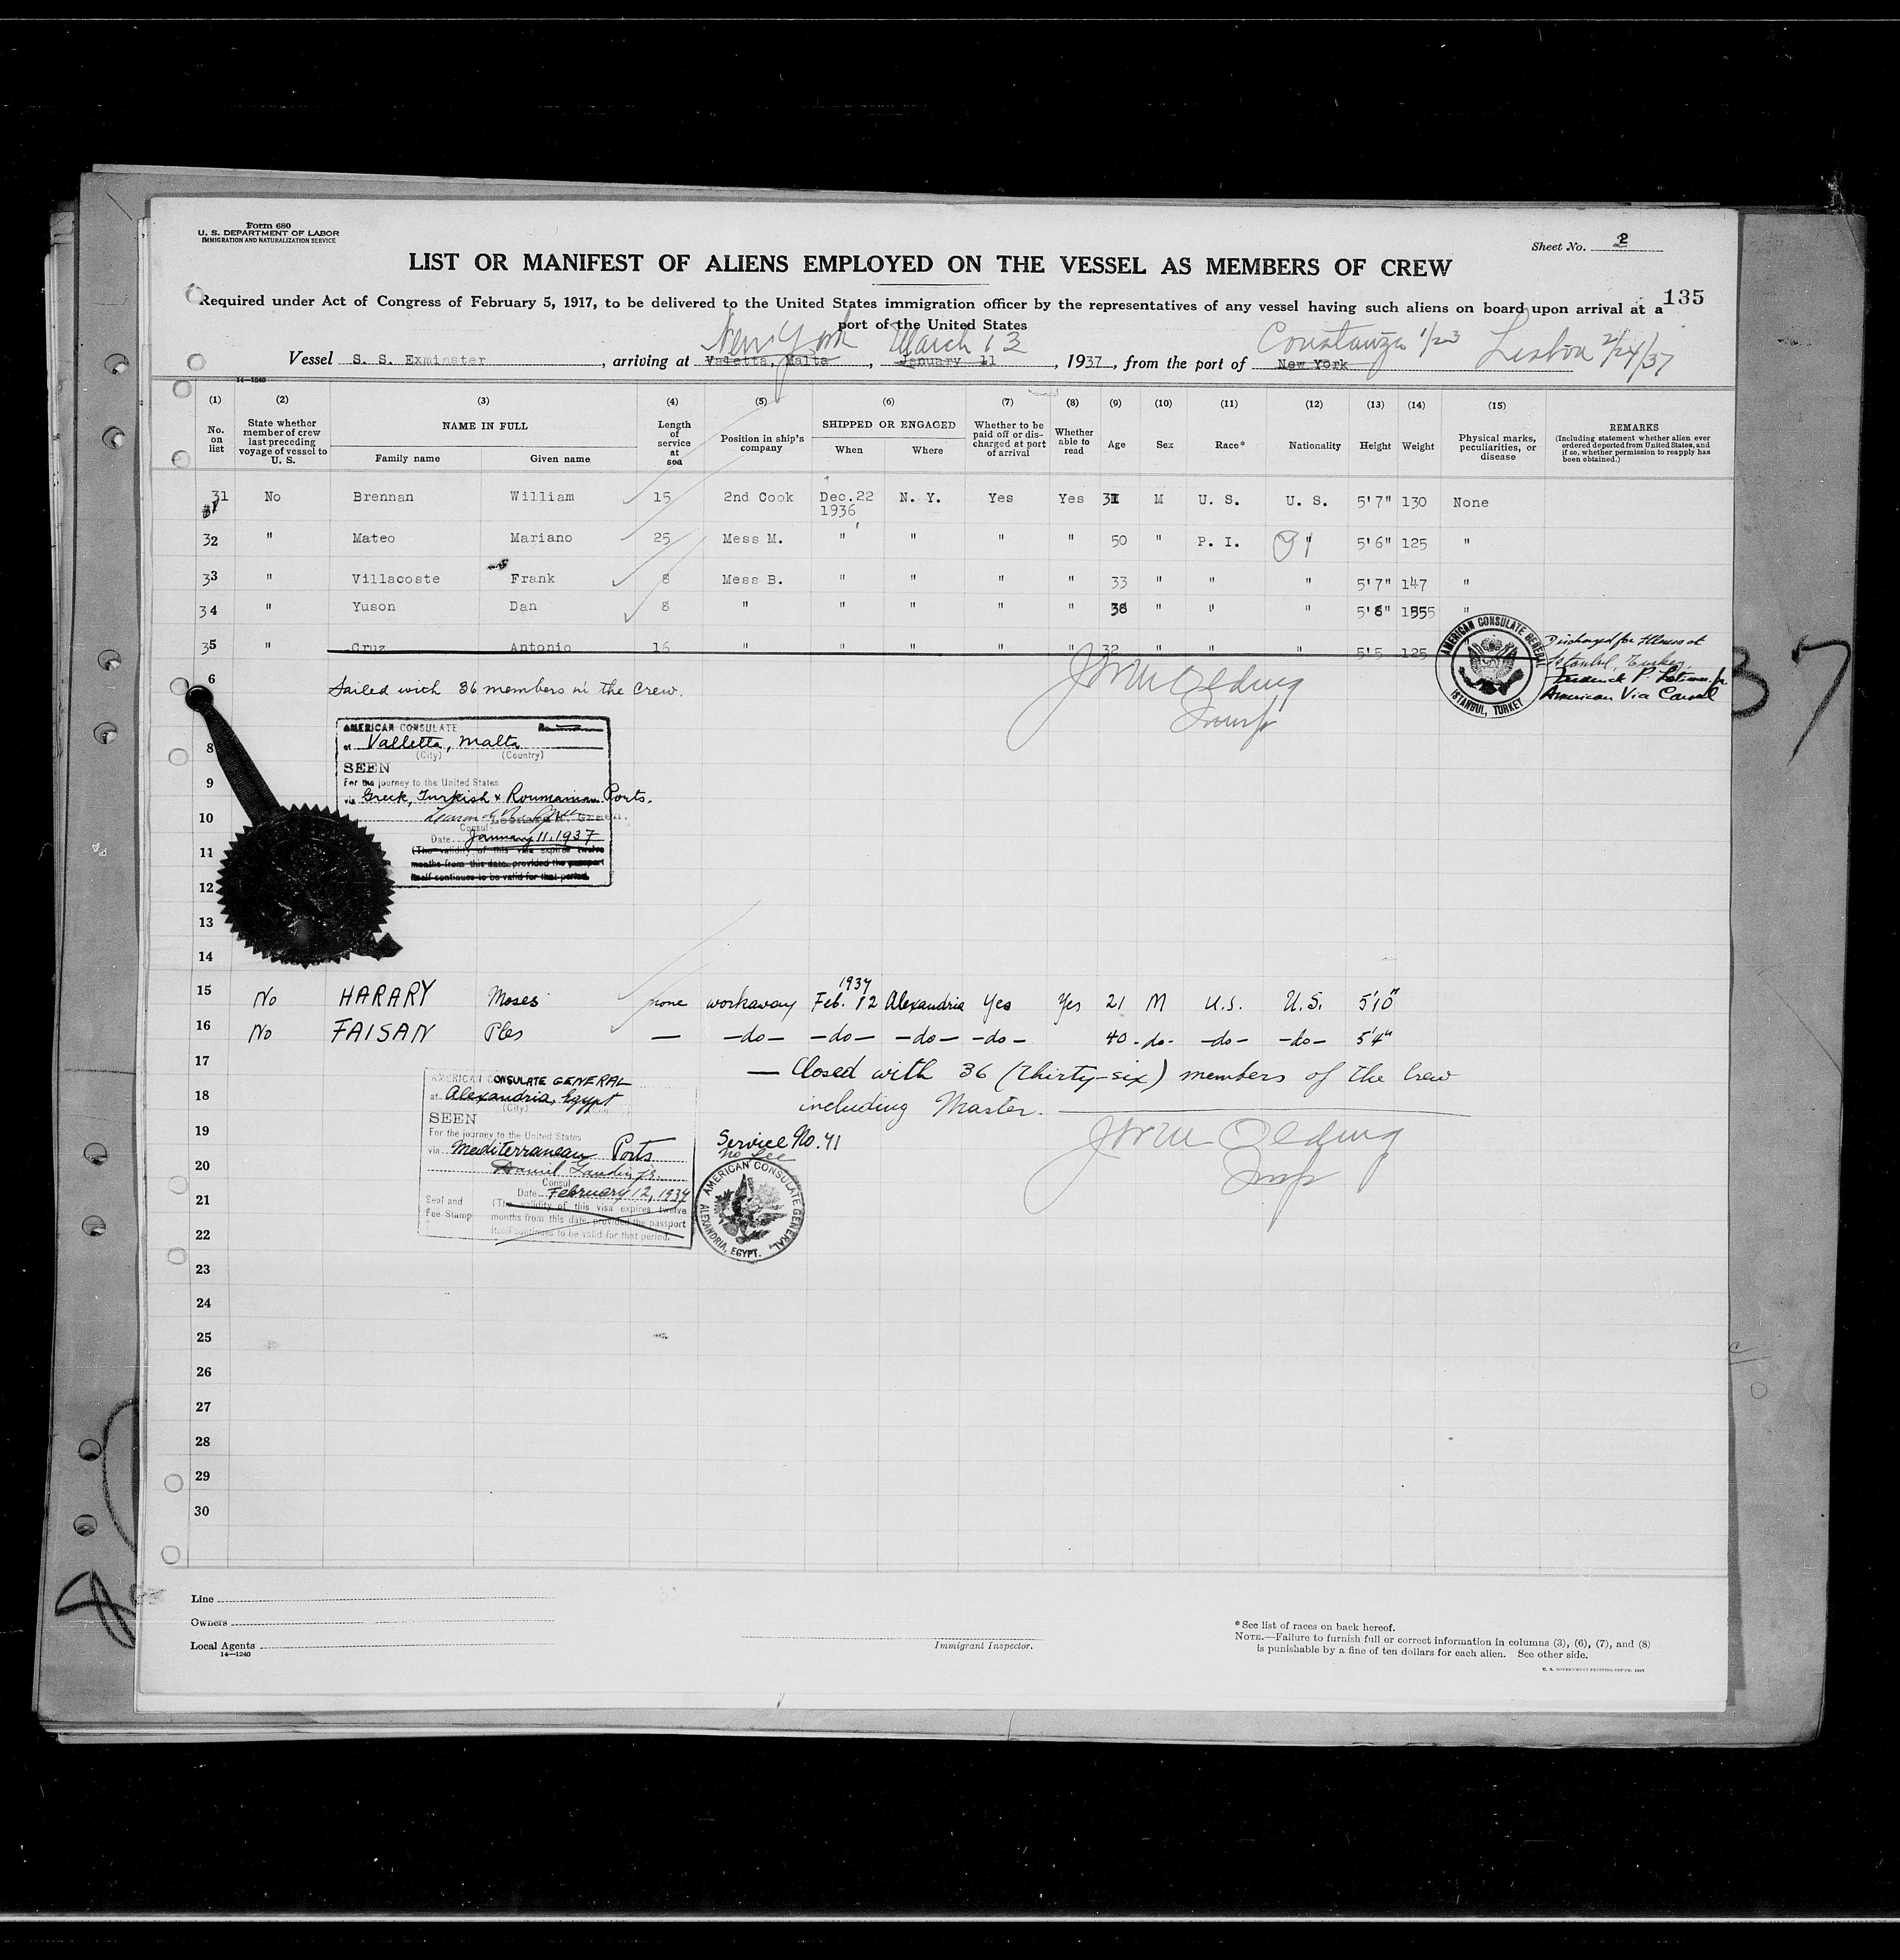 Form 680
U. S. DEPARTMENT OF LABOR
IMMIGRATION AND NATURALIZATION SERVICE
Sheet No. 2
LIST OR MANIFEST OF ALIENS EMPLOYED ON THE VESSEL AS MEMBERS OF CREW
Required under Act of Congress of February 5, 1917, to be delivered to the United States immigration officer by the representatives of any vessel having such aliens on board upon arrival at a
135
port of the United States
New York March 13 Constanza 1/23 Lisbon 2/24/37
Vessel S. S. Exminster, arriving at Valetta, Malta, January 11, 1937, from the port of New York
14—1240
(1) (2) (3) (4) (5) (6) (7) (8) (9) (10) (11) (12) (13) (14) (15)
No. on list
State whether member of crew last preceding voyage of vessel to U. S.
NAME IN FULL
Family name Given name
Length of service at sea
Position in ship's company
SHIPPED OR ENGAGED
When Where
Whether to be paid off or discharged at port of arrival
Whether able to read
Age Sex Race* Nationality Height Weight
Physical marks, peculiarities, or disease
REMARKS
(Including statement whether alien ever ordered deported from United States, and if so, whether permission to reapply has been obtained.)
31 No Brennan William 15 2nd Cook Dec.22 1936 N. Y. Yes Yes 31 M U. S. U. S. 5'7" 130 None
32 " Mateo Mariano 25 Mess M. " " " " 50 " P. I. " 5'6" 125 "
33 " Villacoste Frank 8 Mess B. " " " " 33 " " " 5'7" 147 "
34 " Yuson Dan 8 " " " " " 38 " " " 5'8" 155 "
35 " Cruz Antonio 16 " " " " " 32 " " " 5'5 125
Discharged for Illness at
Istanbul, Turkey.
Frederick P.
American Vice Consul
AMERICAN CONSULATE GENERAL
ISTANBUL, TURKEY
6
Sailed with 36 members in the Crew.
AMERICAN CONSULATE
at Valletta, Malta
(City) (Country)
8
SEEN
For the journey to the United States
9
via Greek, Turkish & Roumanian Ports.
10
Consul
Date January 11, 1937
11
(The validity of this visa expires twelve
months from this date, provided the passport
itself continues to be valid for that period.
12
13
14
15 No HARARY Moses none workaway 1937 Feb. 12 Alexandria Yes Yes 21 M U.S. U.S. 5'10"
16 No FAISAN Ples — -do- -do- -do- -do- 40 -do- -do- -do- 5'4"
17
— Closed with 36 (thirty-six) members of the Crew
18
including Master.
AMERICAN CONSULATE GENERAL
at Alexandria, Egypt
(City)
SEEN
19
For the journey to the United States
Service No. 41
No fee
via Mediterranean Ports
20
Consul
Date February 12, 1937
21
Seal and
Fee Stamp
(The validity of this visa expires twelve
months from this date, provided the passport
itself continues to be valid for that period.
AMERICAN CONSULATE GENERAL
ALEXANDRIA, EGYPT.
22
23
24
25
26
27
28
29
30
Line
Owners
Local Agents
14—1240
Immigrant Inspector.
*See list of races on back hereof.
NOTE.—Failure to furnish full or correct information in columns (3), (6), (7), and (8)
is punishable by a fine of ten dollars for each alien. See other side.